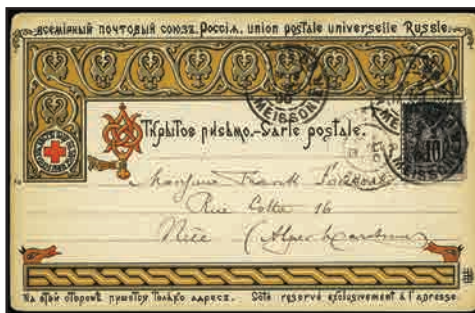 всемірный почтовый союзъ. Россія. union postale universelle Russie.
MEISSONIER
Открытое письмо.-Carte postale.
10
MEISSONIER
Monsieur Frank
Rue Cotta 16
Nice (Alpes Maritimes
На этой сторонѣ пишется только адресъ. Côté réservé exclusivement à l'adresse.